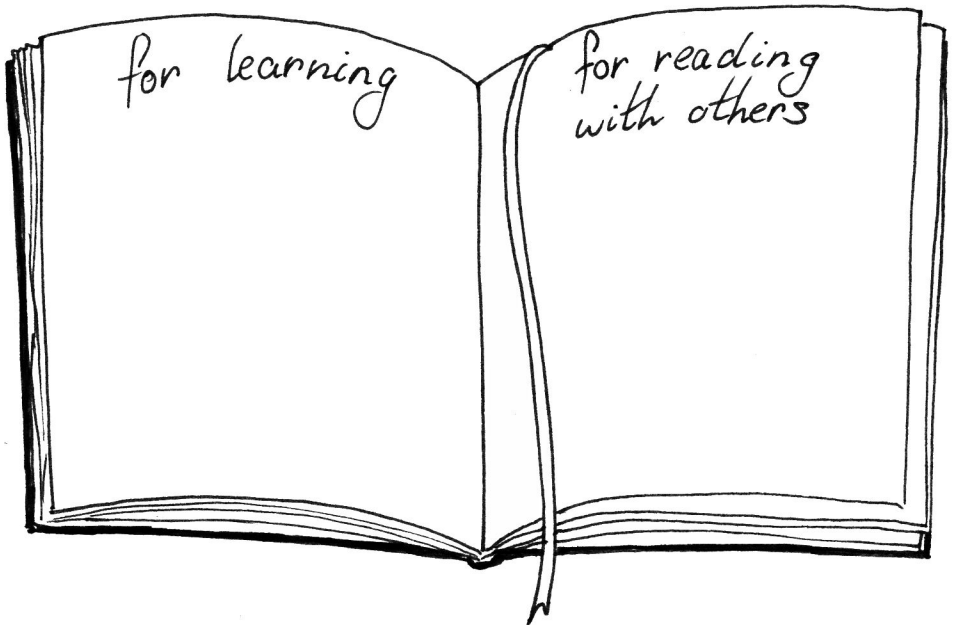 for learning
for reading
with others